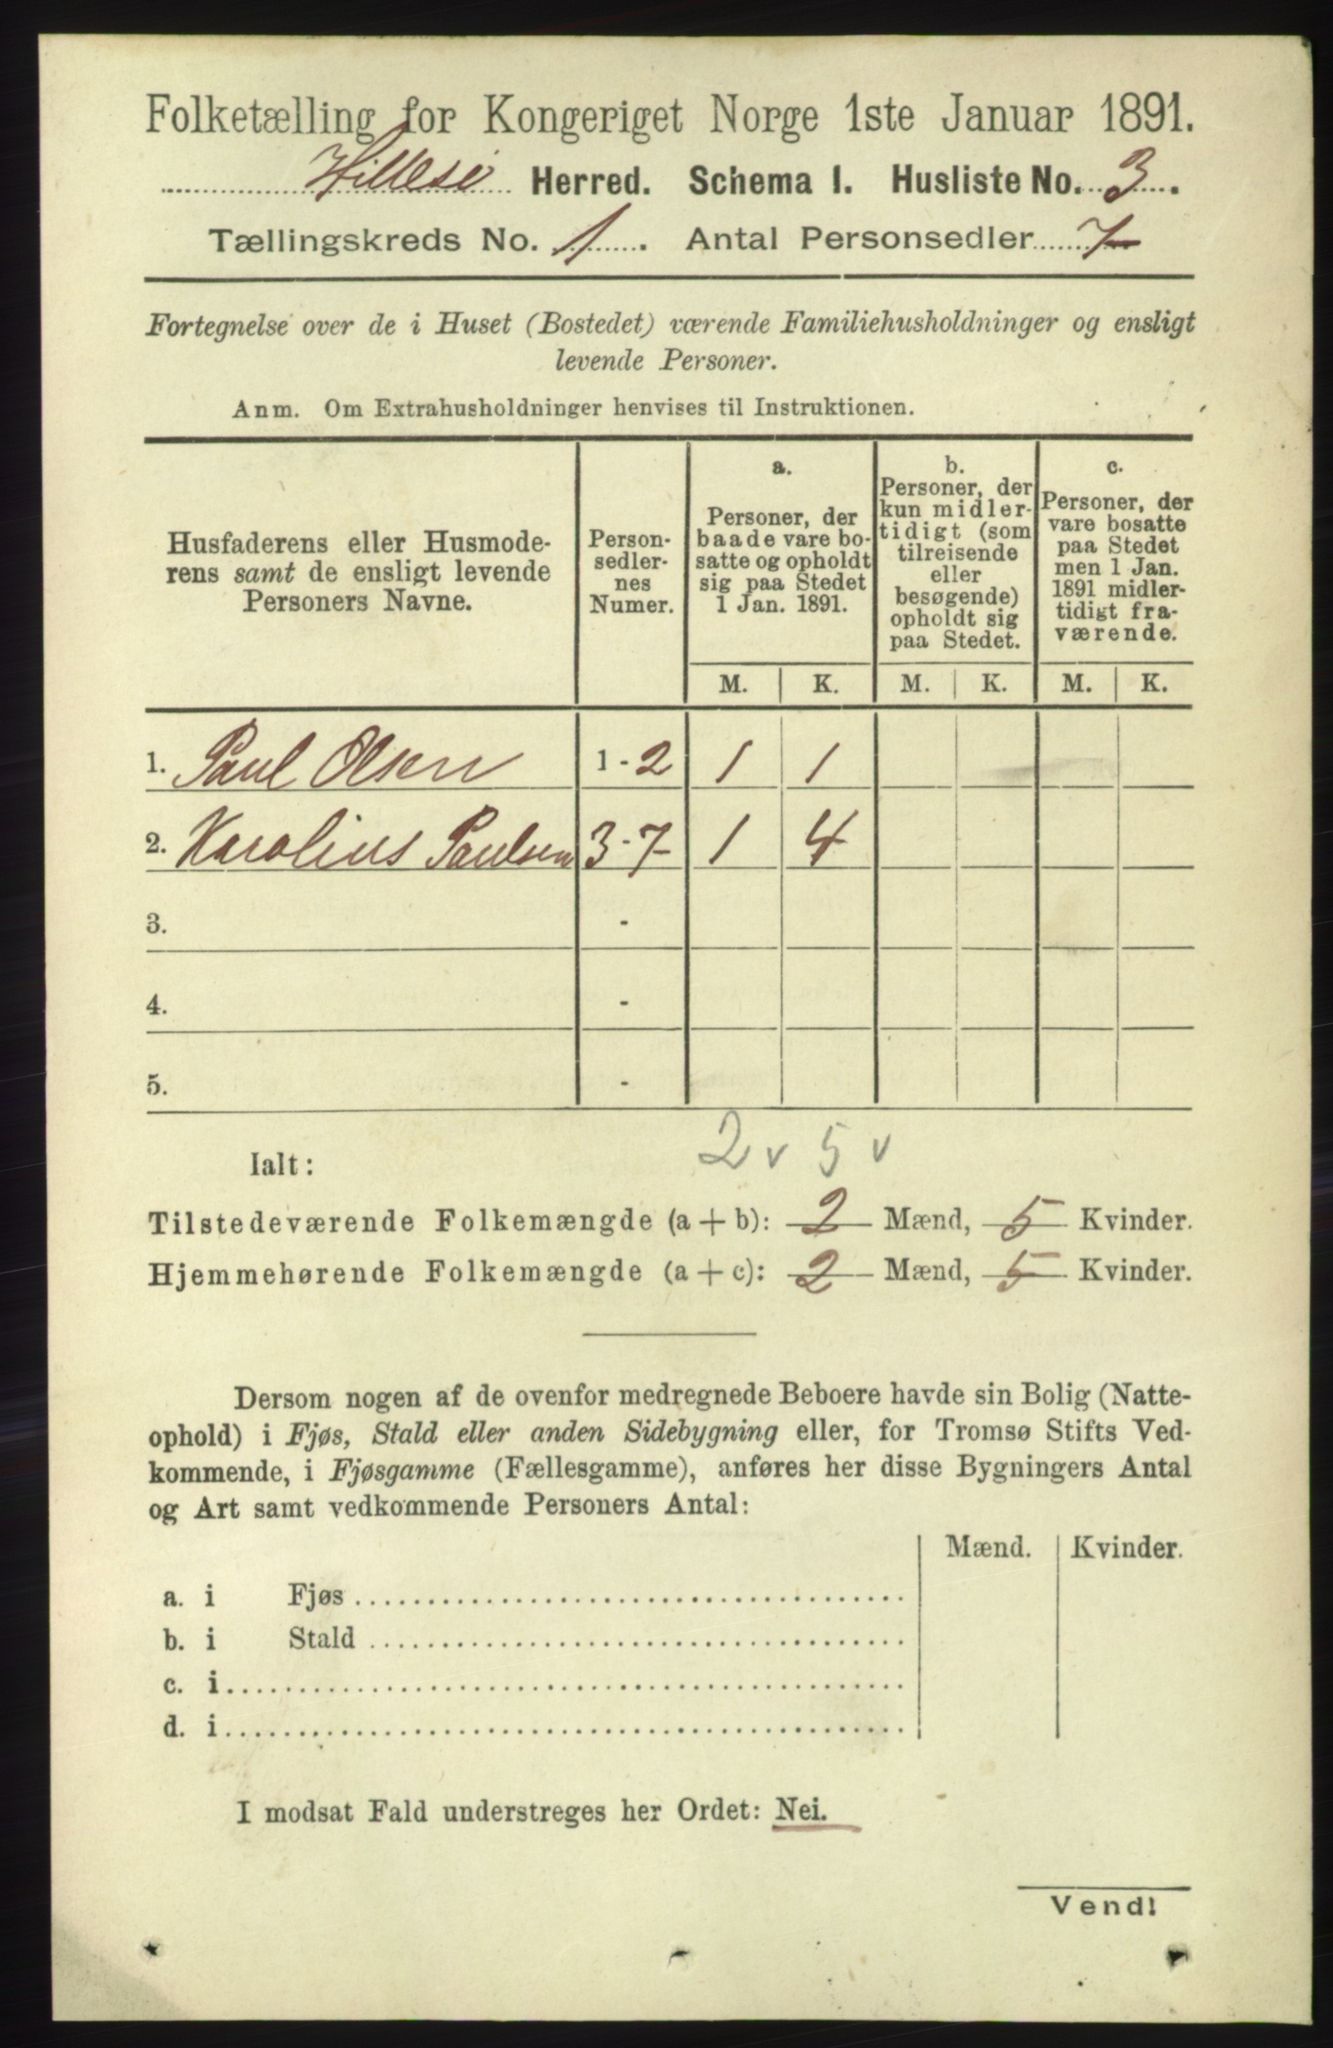 Folketælling for Kongeriget Norge 1ste Januar 1891.
Hillesø Herred. Schema I. Husliste No. 3.
Tællingskreds No. 1. Antal Personsedler 7
Fortegnelse over de i Huset (Bostedet) værende Familiehusholdninger og ensligt
levende Personer.
Anm. Om Extrahusholdninger henvises til Instruktionen.
Husfaderens eller Husmode-
rens samt de ensligt levende
Personers Navne.
Person-
sedler-
nes
Numer.
a.
Personer, der
baade vare bo-
satte og opholdt
sig paa Stedet
1 Jan. 1891.
b.
Personer, der
kun midler-
tidigt (som
tilreisende
eller
besøgende)
opholdt sig
paa Stedet.
c.
Personer, der
vare bosatte
paa Stedet
men 1 Jan.
1891 midler-
tidigt fra-
værende.
M. K. M. K. M. K.
1. Paul Olsen 1-2 1 1
2. Karolius Paulsen 3-7 1 4
3. -
4. -
5. -
2 v 5 v
Ialt:
Tilstedeværende Folkemængde (a + b): 2 Mænd, 5 Kvinder.
Hjemmehørende Folkemængde (a + c): 2 Mænd, 5 Kvinder.
Dersom nogen af de ovenfor medregnede Beboere havde sin Bolig (Natte-
ophold) i Fjøs, Stald eller anden Sidebygning eller, for Tromsø Stifts Ved-
kommende, i Fjøsgamme (Fællesgamme), anføres her disse Bygningers Antal
og Art samt vedkommende Personers Antal:
Mænd. Kvinder.
a. i Fjøs
b. i Stald
c. i
d. i
I modsat Fald understreges her Ordet: Nei.
Vend!